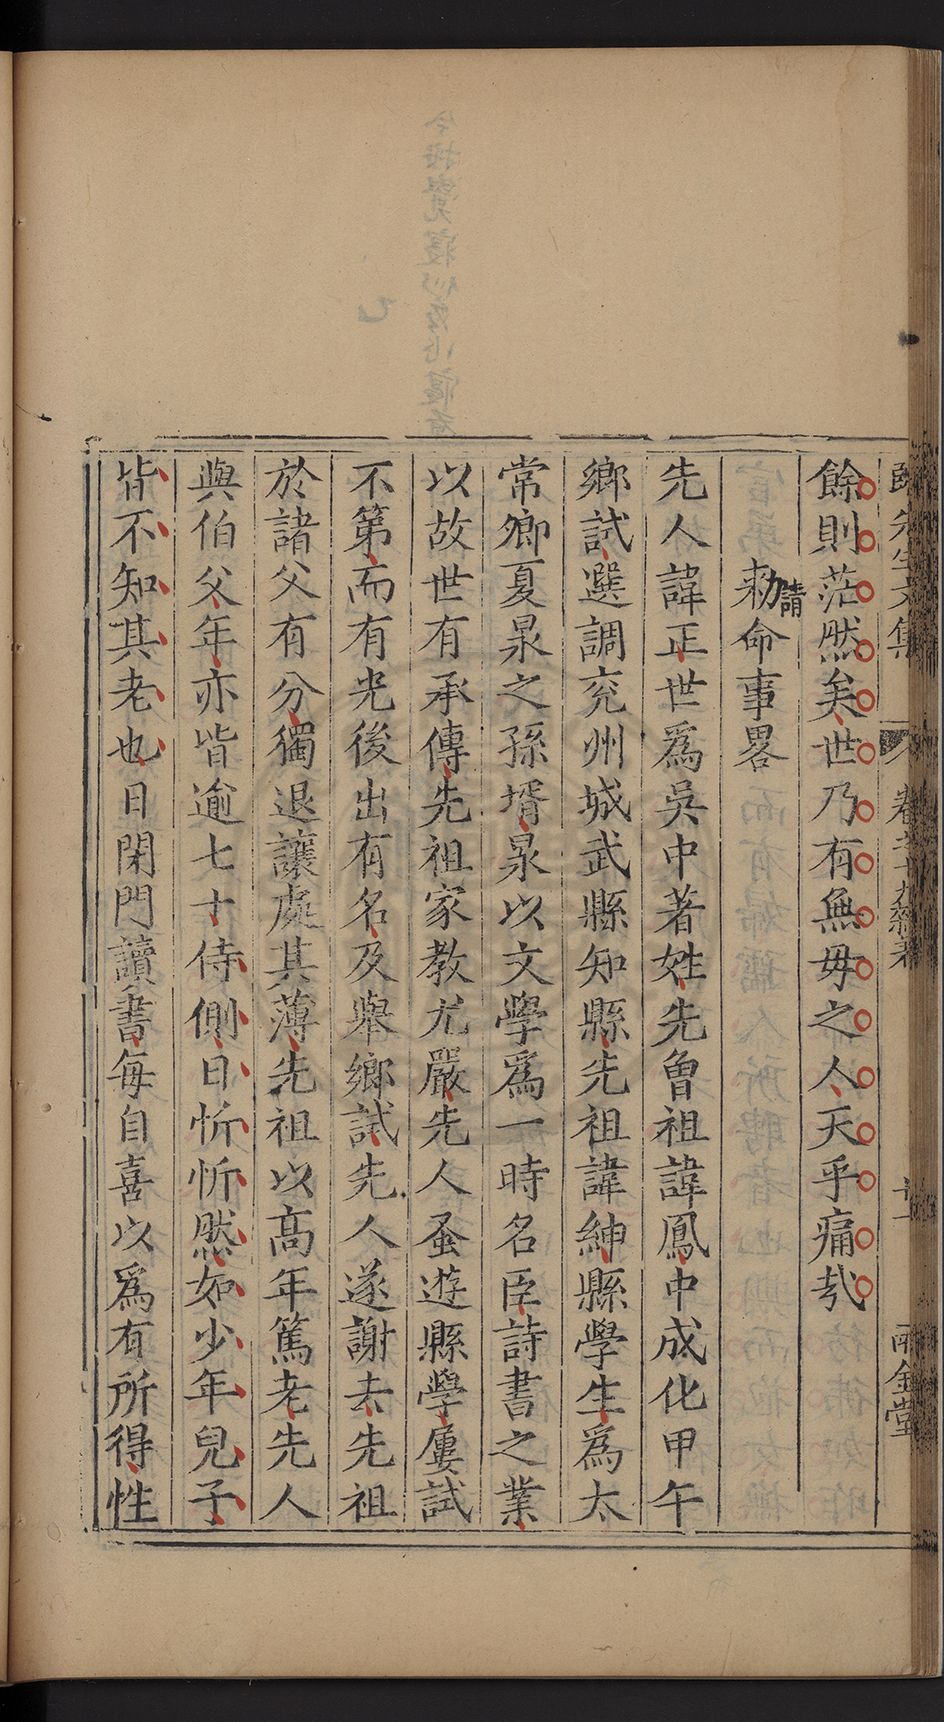 餘則茫然矣世乃有無毋之人天乎痛㦲
請
勑命事畧
先人諱正世爲吳中著姓先曾祖諱鳳中成化甲午
鄉試選調兖州城武縣知縣先祖諱紳縣學生爲太
常卿夏㫤之孫壻㫤以文學爲一時名臣詩書之業
以故世有承傳先祖家教尤嚴先人蚤遊縣學屢試
不第而有光後出有名及舉鄉試先人遂謝去先祖
於諸父有分獨退讓處其薄先祖以高年篤老先人
與伯父年亦皆逾七十侍側日忻忻然如少年兒子
皆不知其老也日閉門讀書每自喜以爲有所得性